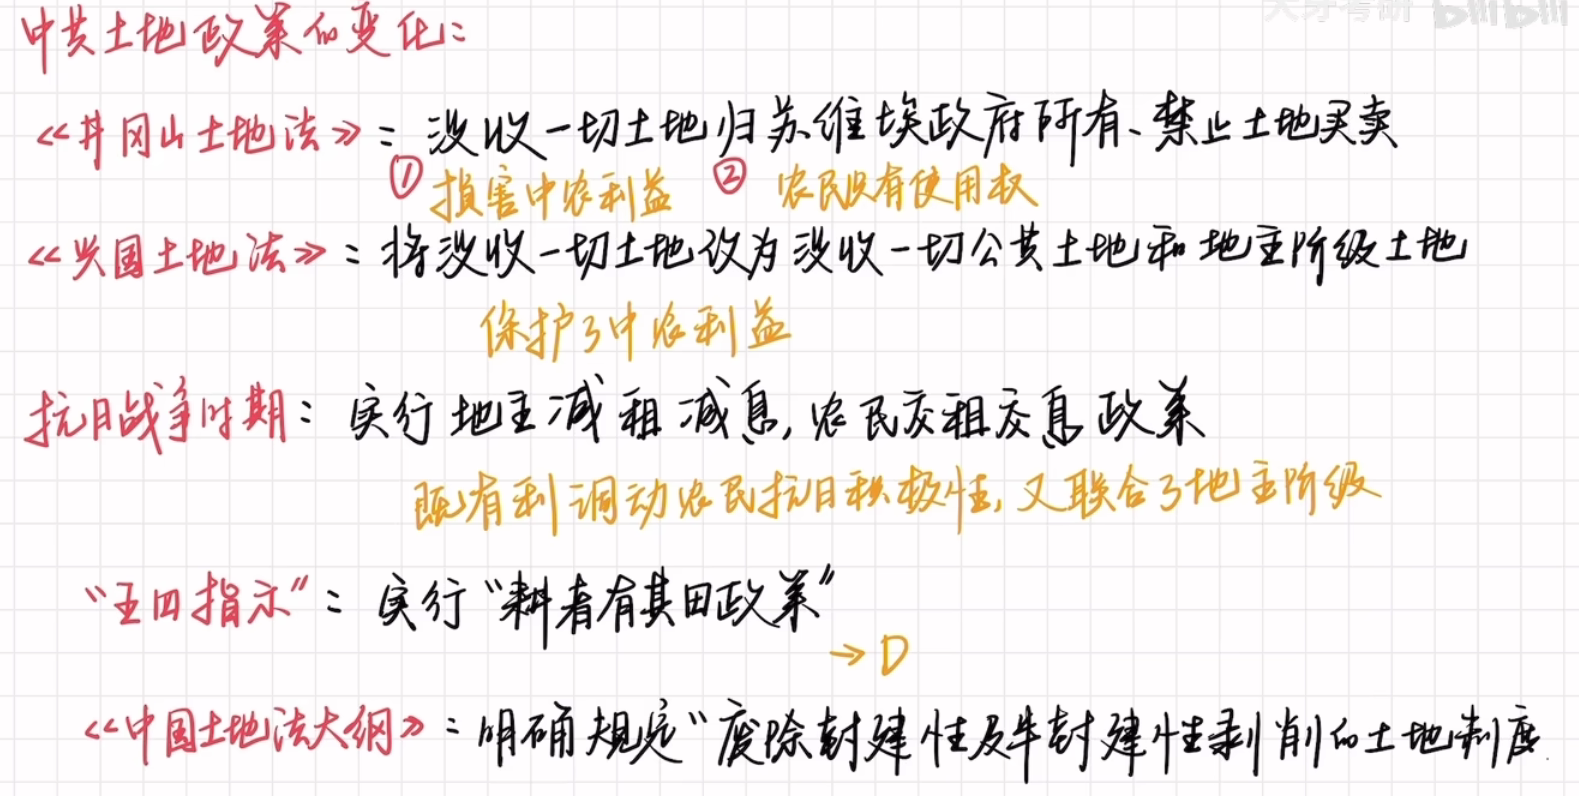 大牙考研 bilibili
中共土地政策的变化:
《井冈山土地法》: 没收一切土地归苏维埃政府所有、禁止土地买卖
① 损害中农利益 ② 农民只有使用权
《兴国土地法》: 将没收一切土地改为没收一切公共土地和地主阶级土地
保护了中农利益
抗日战争时期: 实行地主减租减息, 农民交租交息政策
既有利调动农民抗日积极性, 又联合了地主阶级
“五四指示”: 实行“耕者有其田政策”
→ D
《中国土地法大纲》: 明确规定“废除封建性及半封建性剥削的土地制度.